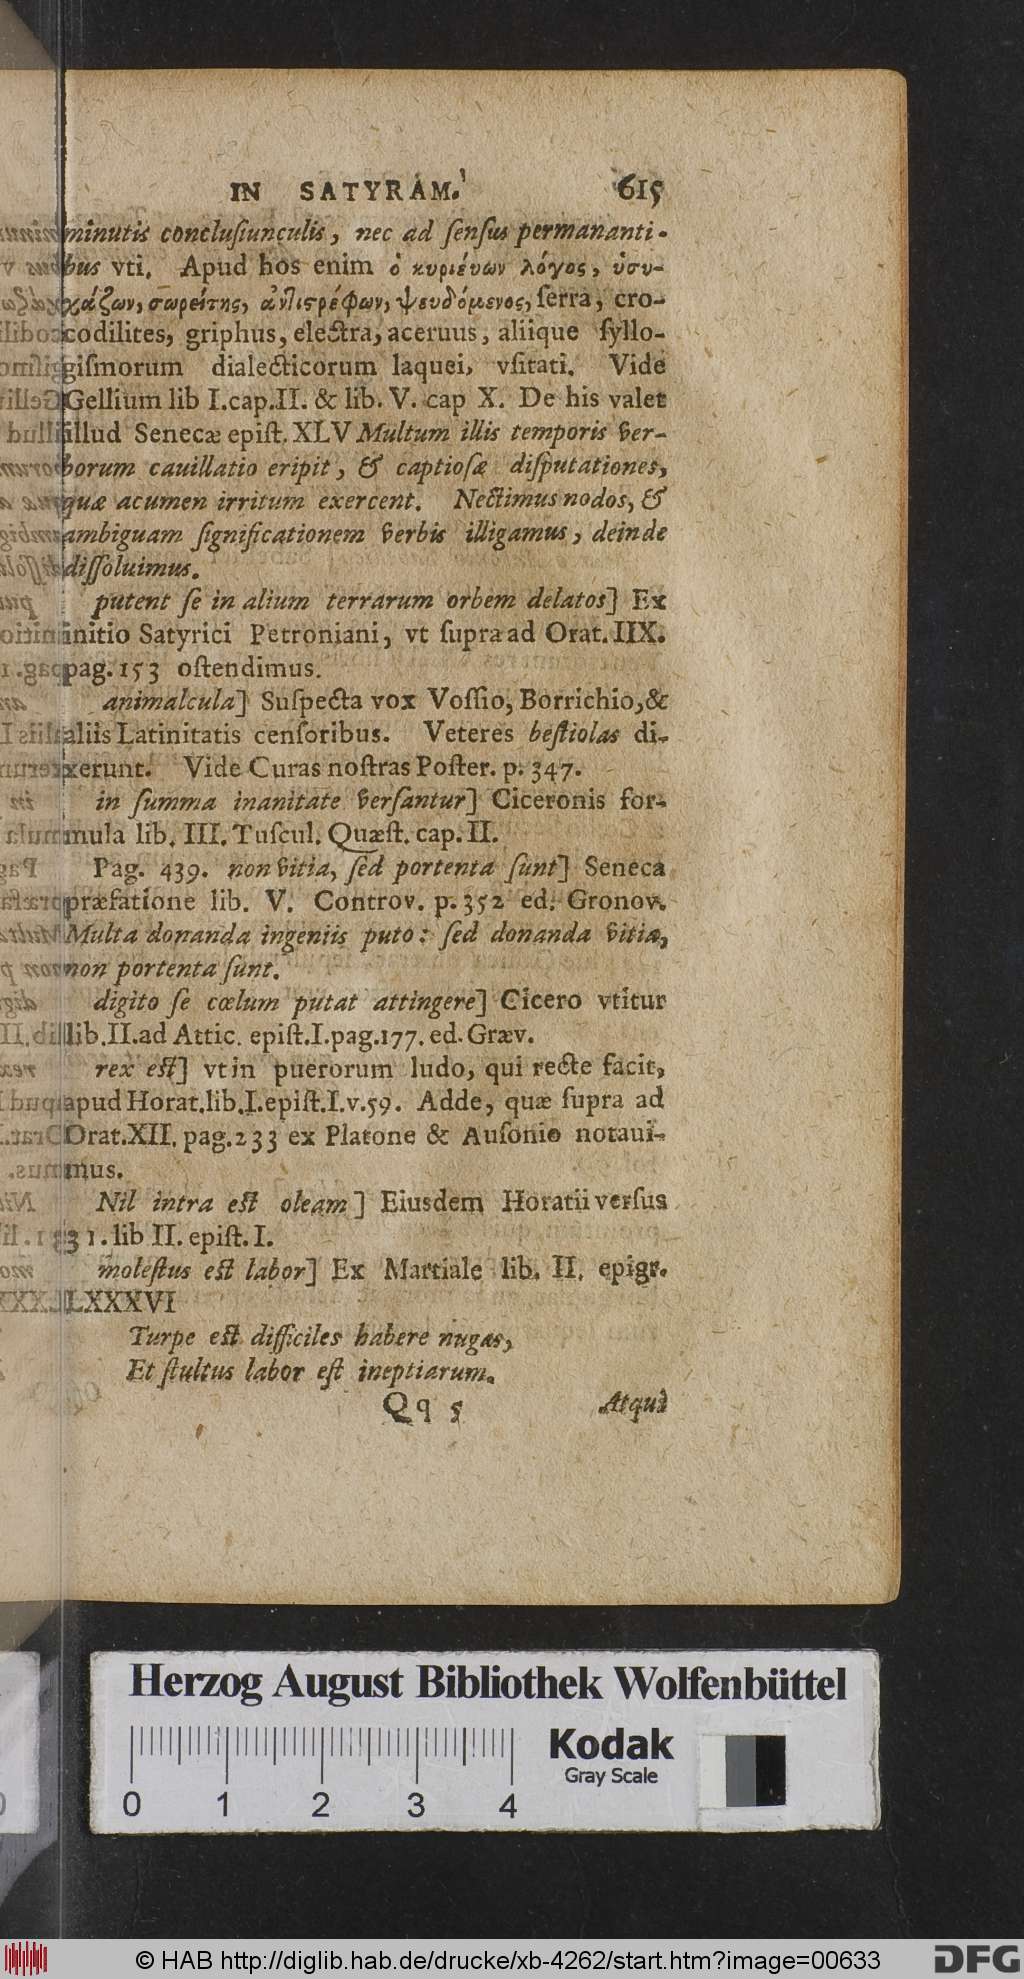 IN SATYRAM. 615
minutis conclusiunculis, nec ad sensus permananti-
bus vti. Apud hos enim ὁ κυριεύων λόγος, ἡσυ-
χάζων, σωρείτης, ἀντιστρέφων, ψευδόμενος, serra, cro-
codilites, griphus, electra, aceruus, aliique syllo-
gismorum dialecticorum laquei, vsitati. Vide
Gellium lib I. cap. II. & lib. V. cap X. De his valet
illud Senecæ epist. XLV Multum illis temporis ver-
borum cauillatio eripit, & captiosæ disputationes,
quæ acumen irritum exercent. Nectimus nodos, &
ambiguam significationem verbis illigamus, deinde
dissoluimus.
putent se in alium terrarum orbem delatos] Ex
initio Satyrici Petroniani, vt supra ad Orat. IIX.
pag. 153 ostendimus.
animalcula] Suspecta vox Vossio, Borrichio, &
aliis Latinitatis censoribus. Veteres bestiolas di-
xerunt. Vide Curas nostras Poster. p. 347.
in summa inanitate versantur] Ciceronis for-
mula lib. III. Tuscul. Quæst. cap. II.
Pag. 439. non vitia, sed portenta sunt] Seneca
præfatione lib. V. Controv. p. 352 ed. Gronov.
Multa donanda ingeniis puto: sed donanda vitia,
non portenta sunt.
digito se cœlum putat attingere] Cicero vtitur
lib. II. ad Attic. epist. I. pag. 177. ed. Græv.
rex est] vt in puerorum ludo, qui recte facit,
apud Horat. lib. I. epist. I. v. 59. Adde, quæ supra ad
Orat. XII. pag. 233 ex Platone & Ausonio notaui-
mus.
Nil intra est oleam] Eiusdem Horatii versus
31. lib II. epist. I.
molestus est labor] Ex Martiale lib. II. epigr.
LXXXVI
Turpe est difficiles habere nugas,
Et stultus labor est ineptiarum.
Qq 5 Atqui
Herzog August Bibliothek Wolfenbüttel
Kodak
Gray Scale
0 1 2 3 4
© HAB http://diglib.hab.de/drucke/xb-4262/start.htm?image=00633
DFG